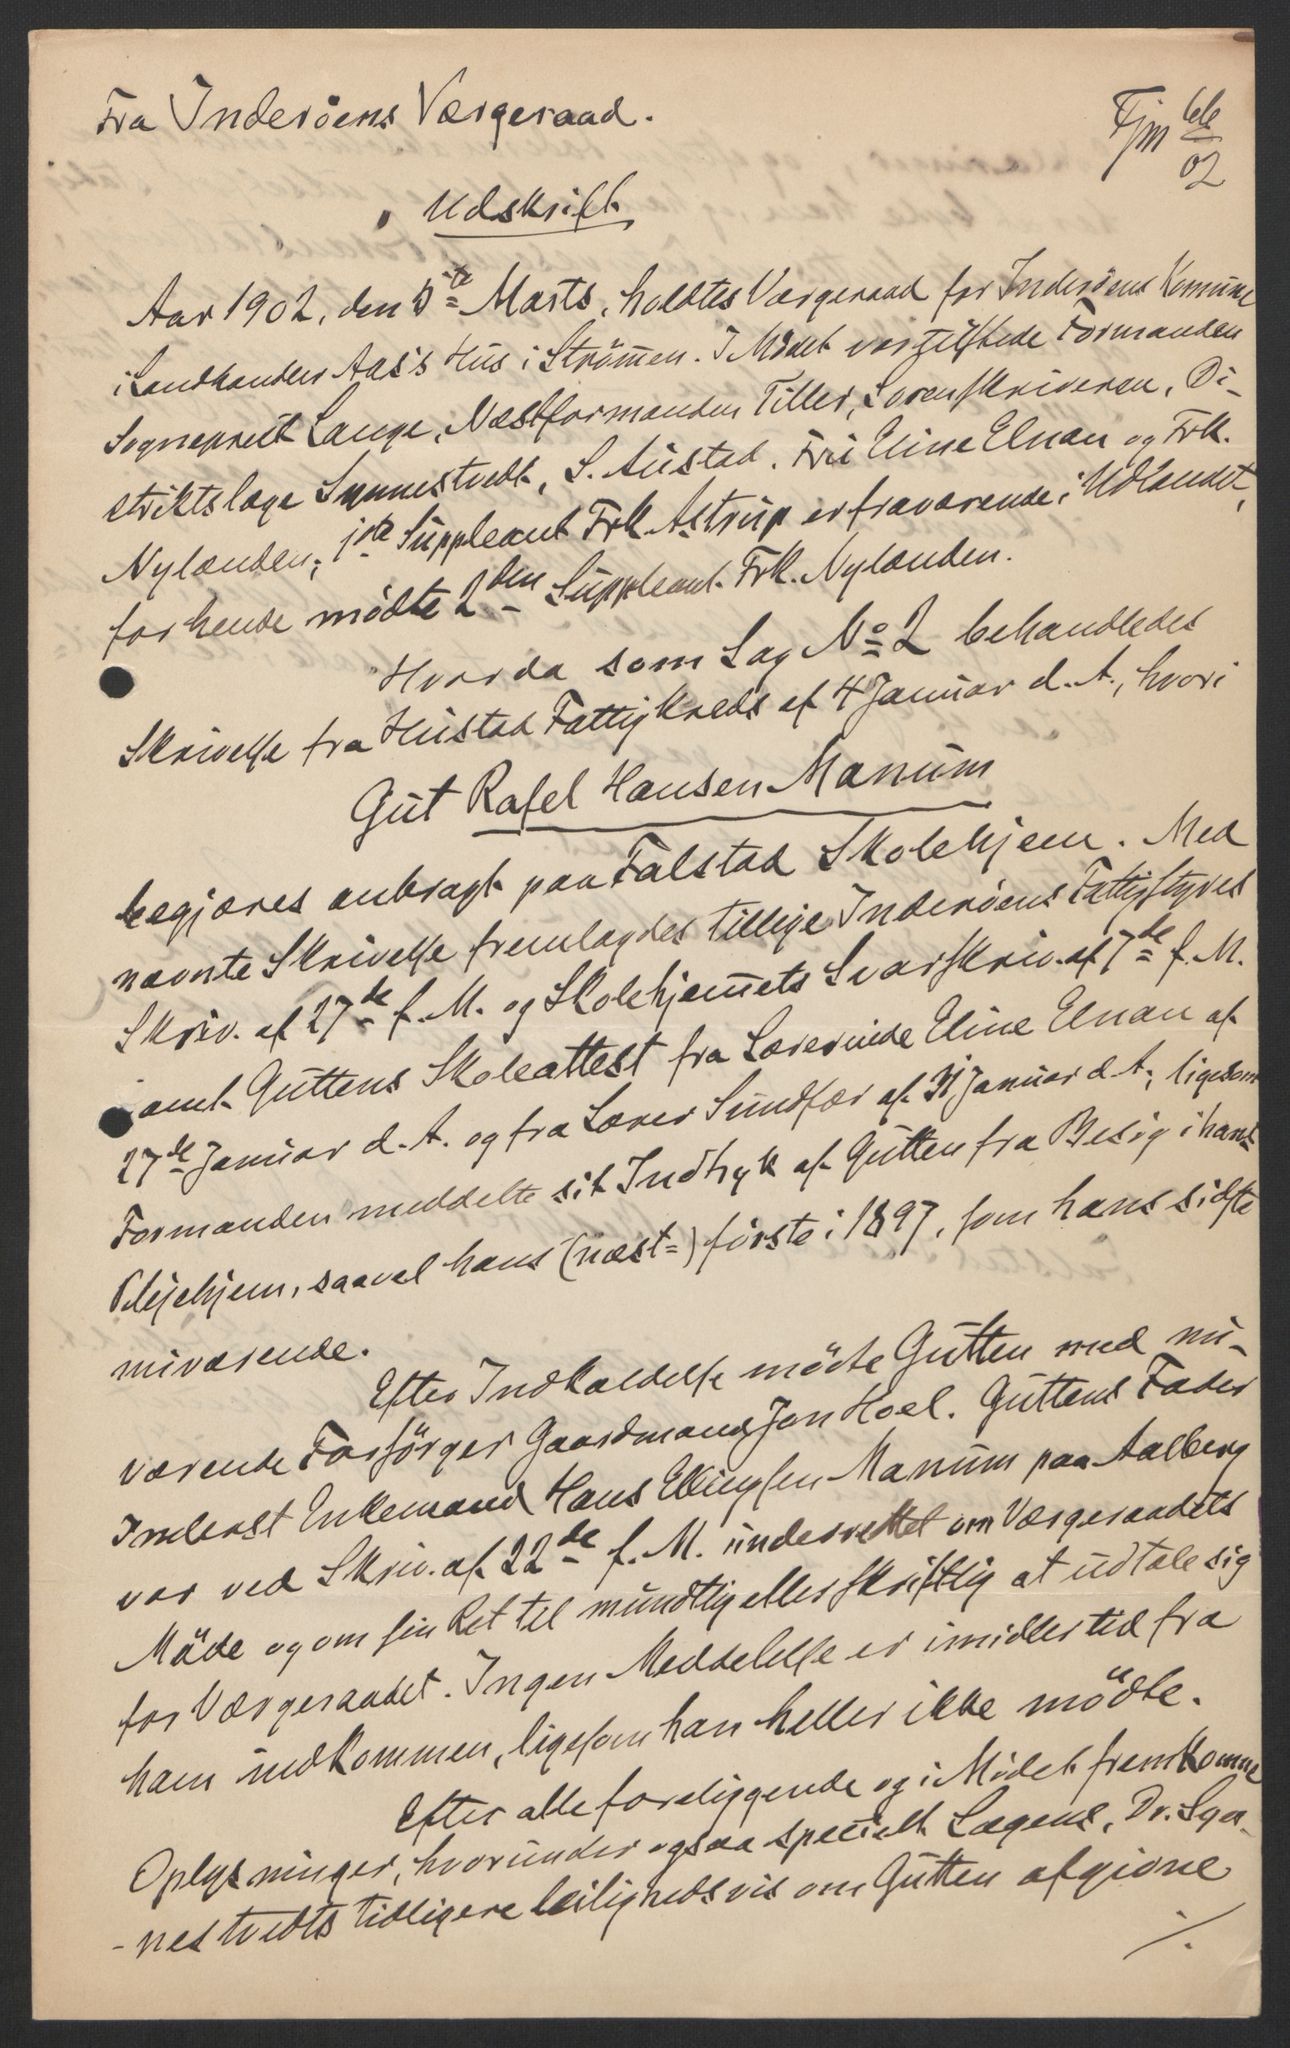 Fra Inderöens Værgeraad.
Fjm 66/02
Udskrift
Aar 1902, den 5te Marts, holdtes Værgeraad for Inderöens Komune
i Landhandler Aas's Hus i Strömen. I Mödet var tilstede Formanden
Sogneprest Lange, Næstformanden Tiller, Sorenskriveren, Di-
striktslæge Synnestvedt, S. Austad, Fru Eline Elnan og Frk.
Nylænden; 1ste Suppleant Frk. Astrup er fraværende i Udlandet,
for hende mødte 2den Suppleant Frk. Nylænden.
Hvorda som Sag No 2 behandledes
Skrivelse fra Hustad Fattigkreds af 4 Januar d. A., hvori
Gut Rafel Hansen Manum
begjæres anbragt paa Falstad Skolehjem. Med
nævnte Skrivelse fremlagdes tillige Inderöens Fattigstyres
Skriv. af 27de f. M. og Skolehjemets Svarskriv. af 7de f. M.
samt Guttens Skoleattest fra Lærerinde Eline Elnan af
27de Januar d. A. og fra Lærer Sundfær af 31 Januar d. A., ligesom
Formanden meddelte sit Indtryk af Gutten fra Besög i hans
Plejehjem, saavel hans (næst=) förste i 1897, som hans sidste
nuværende.
Efter Indkaldelse mödte Gutten med nu-
værende Forsörger Gaardmand Jon Hoel. Guttens Fader
Inderst Enkemand Hans Ellingsen Manum paa Aalberg
var ved Skriv. af 22de f. M. underrettet om Værgeraadets
Möde og om sin Ret til mundtlig eller skriftlig at udtale sig
for Værgeraadet. Ingen Meddelelse er imidlertid fra
ham indkommen, ligesom han heller ikke mödte.
Efter alle foreliggende og i Mødet fremkomne
Oplysninger, hvorunder ogsaa specielt Lægens, Dr. Syn-
-nestvedts tidligere leilighedsvis om Gutten afgivne
./.